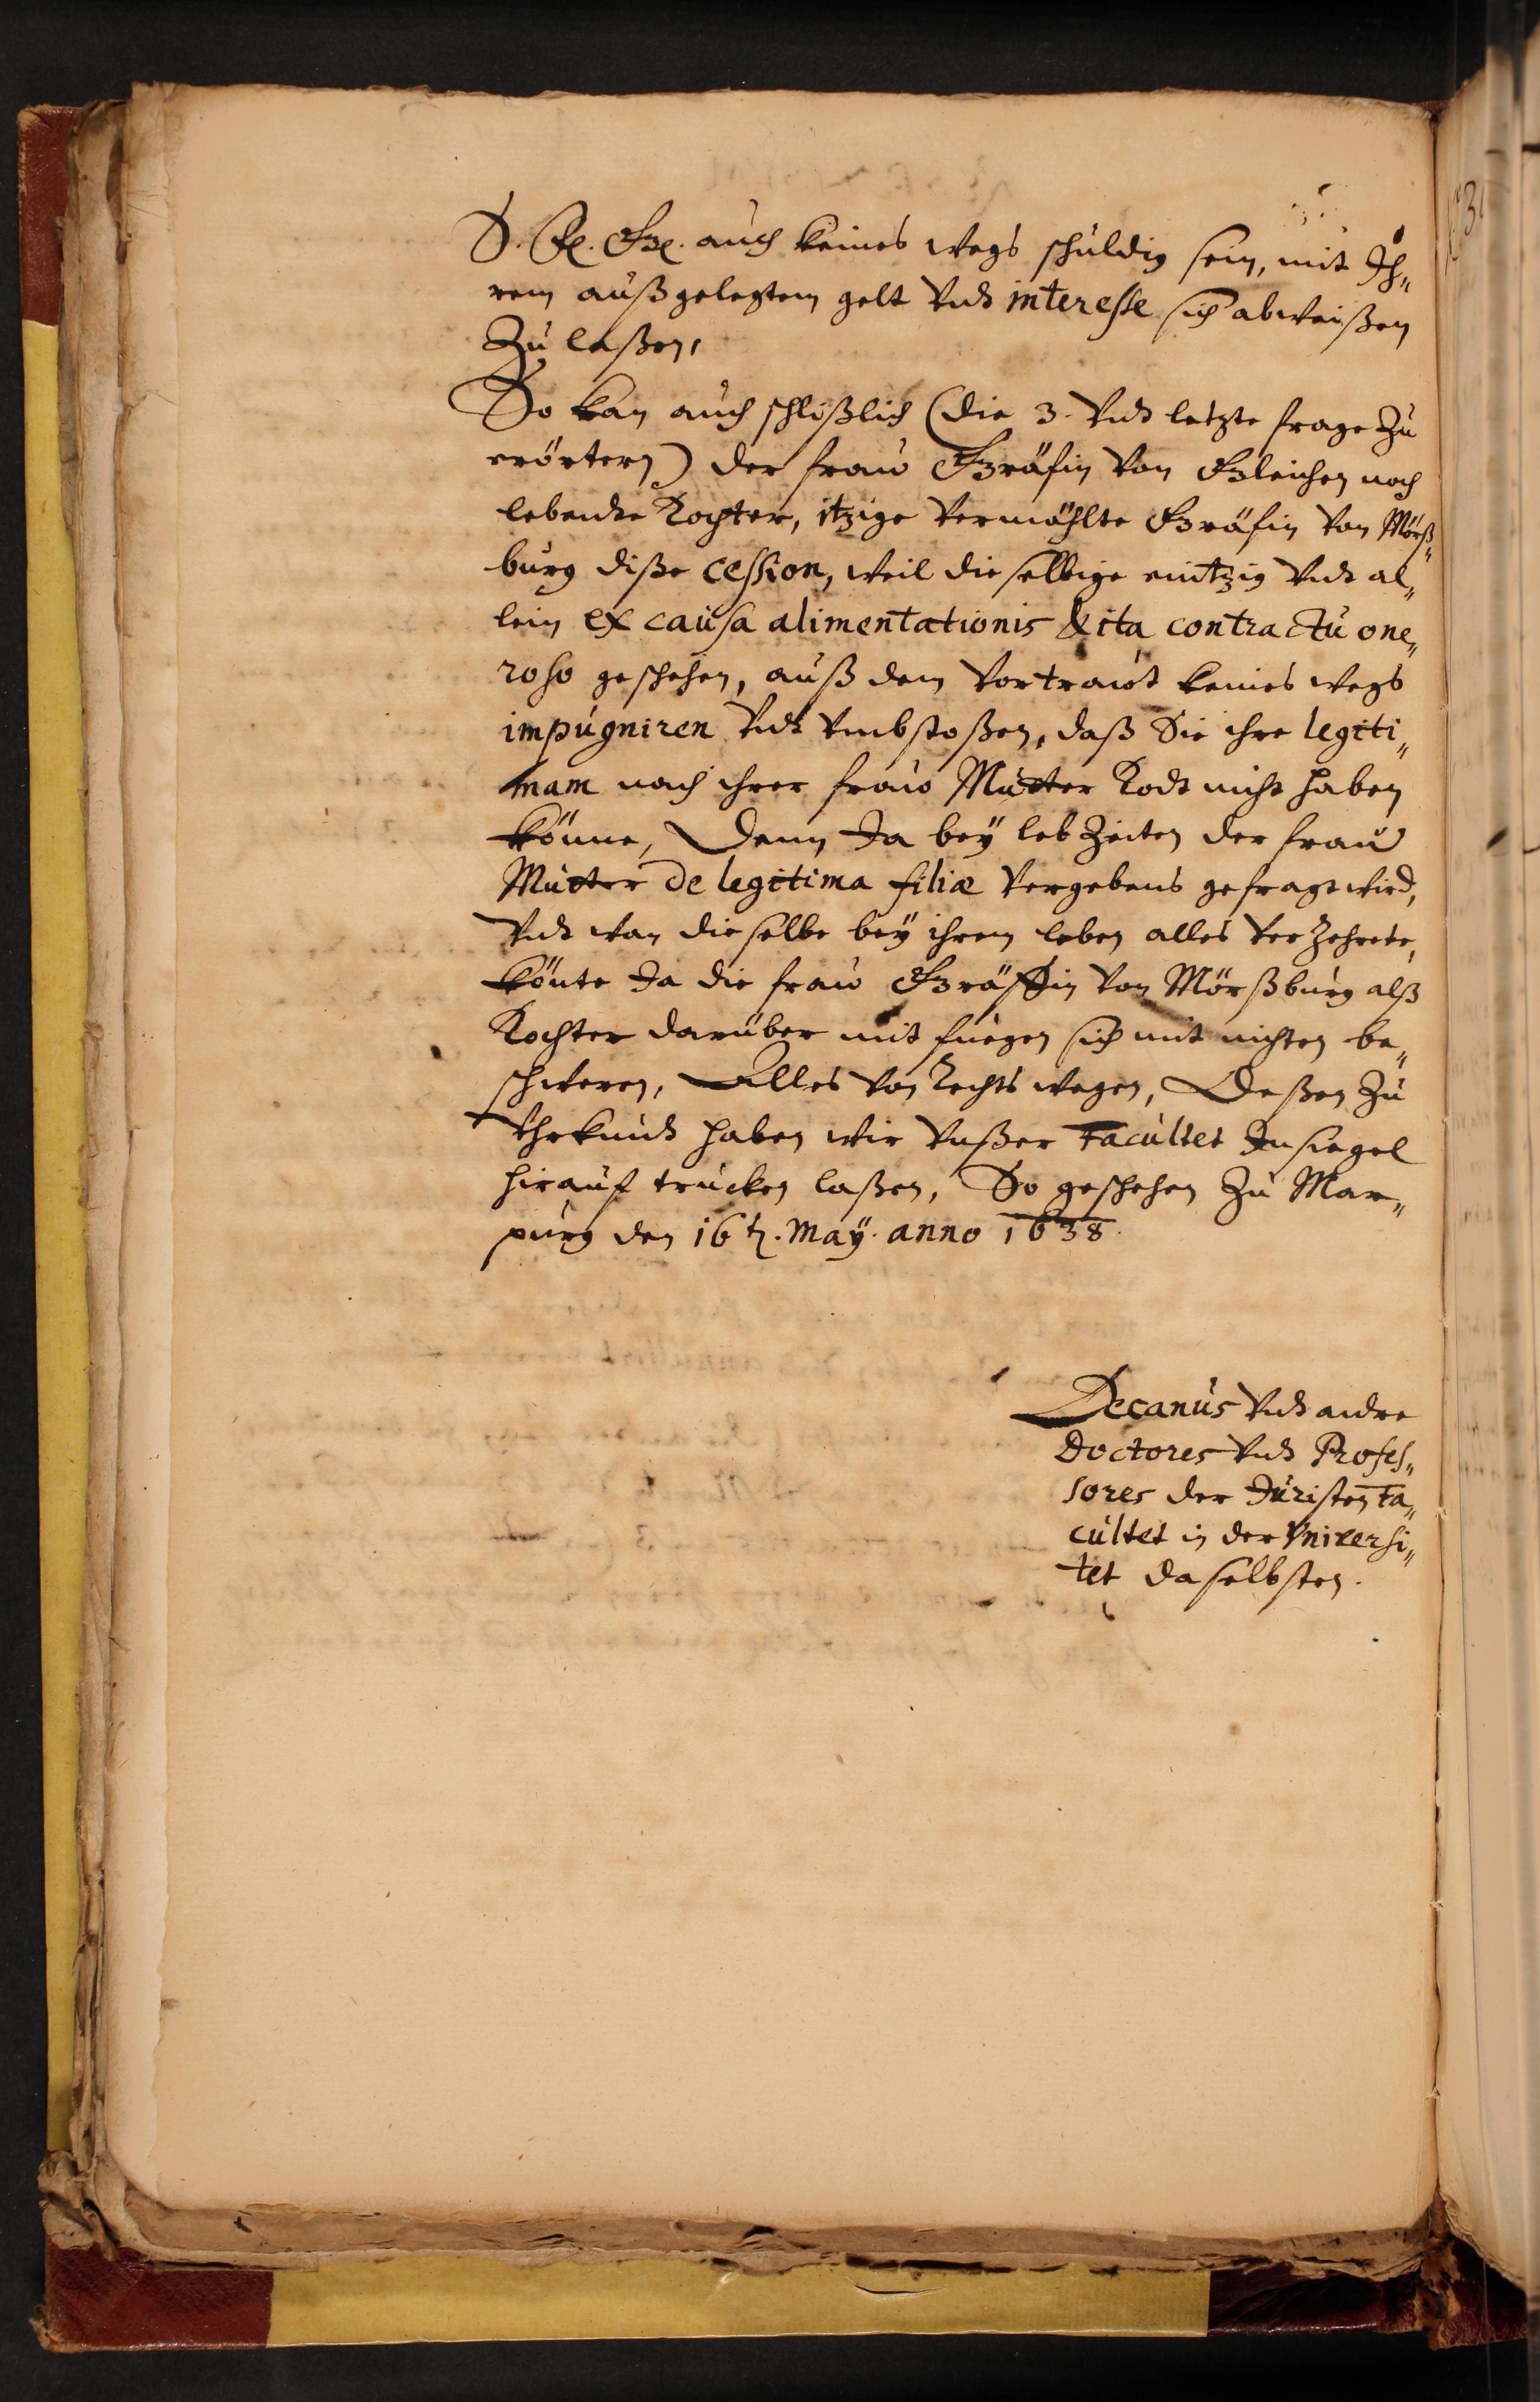 S. F. G. auch keines wegs schuldig sein, mit Ih„
rem außgelegtem gelt vnd interesse sich abweißen
Zu laßen,
So kan auch schlißlich (die 3. vnd letzte frage Zu
erörtern) der fraw Gräfin von Gleichen noch
lebende Tochter, itzige vermählte Gräfin von Mörß„
burg diße cession, weil dieselbige eintzig vnd al„
lein ex causa alimentationis & ita contractu one„
roso geschehen, auß dem vortrawt keines wegs
impugniren vnd vmbstoßen, daß Sie ihre legiti„
mam nach ihrer fraw Mutter Todt nicht haben
könne, Denn Ja bey leb Zeiten der fraw
Mutter de legitima filiæ vergebens gefragt wird,
vnd wan dieselbe bey ihrem leben alles verzehrete,
könte Ja die fraw Gräffin von Mörßburg alß
Tochter darüber mit fuegen sich mit nichten be„
schweren, Alles von Rechts wegen, Deßen Zu
Vhrkund haben wir vnßer Facultet Insiegel
hirauf trucken laßen, So geschehen Zu Mar„
purg den 16 t. May. anno 1638.
Decanus vnd andre
Doctores vnd Profes„
sores der Juristen Fa„
cultet in der Vniversi„
tet daselbsten.